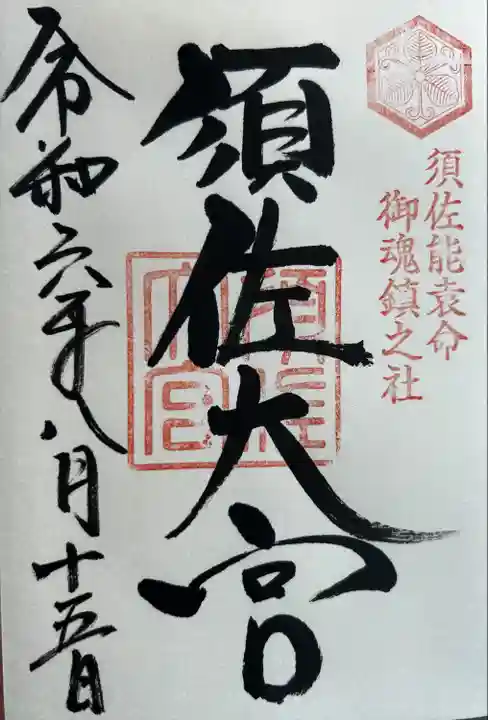 須佐能袁命
御魂鎮之社
須佐大宮
須佐
大宮
令和六年八月十五日